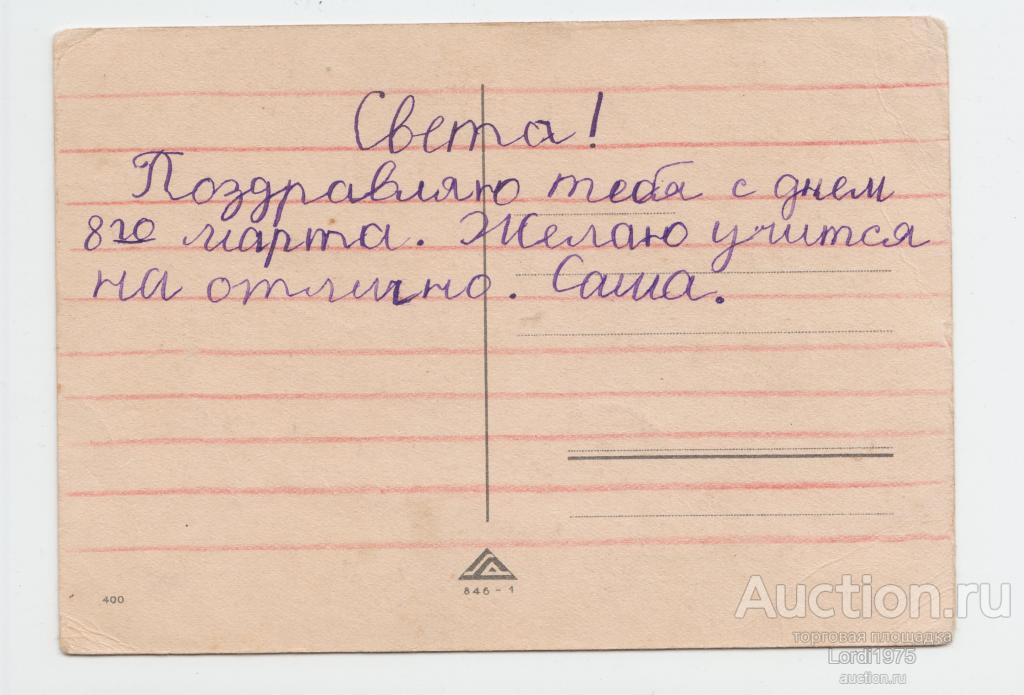 Света!
Поздравляю тебя с днем
8го марта. Желаю учится
на отлично. Саша.
846-1
400
Auction.ru
торговая площадка
Lordi1975
auction.ru